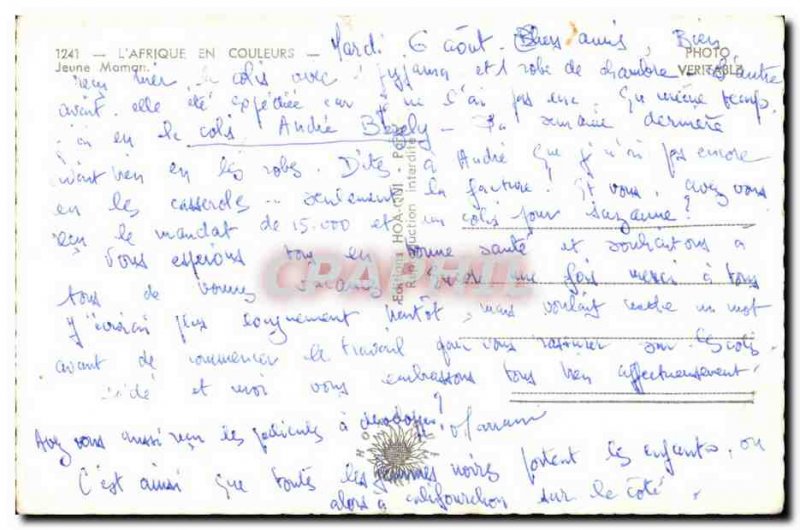 1241 — L'AFRIQUE EN COULEURS —
Jeune Maman.
PHOTO
VERITABLE
Mardi 6 août. Chers amis, Bien
reçu hier le colis avec 1 pyjama et 1 robe de chambre
avant elle été expédiée car je ne l'ai pas eue. En même temps
j'ai eu le colis André - la semaine dernière
vient bien eu les robes. Dites à André que je n'ai pas encore
eu les casseroles .. seulement la facture. Et vous, avez vous
reçu le mandat de 15.000 et un colis pour Suzanne?
Nous espérons tous en bonne santé et souhaitons à
tous de bonnes vacances. Encore une fois merci à tous
J'écrirai plus longuement bientôt, mais voulant mettre un mot
avant de commencer le travail pour vous rassurer sur les colis.
et moi vous embrassons tous bien affectueusement
Avez vous aussi reçu les à ? Maman
C'est ainsi que toutes les femmes noires portent les enfants, ou
alors à califourchon sur le côté.
Editions HOA-QUI -
Reproduction interdite
CPAPHIL